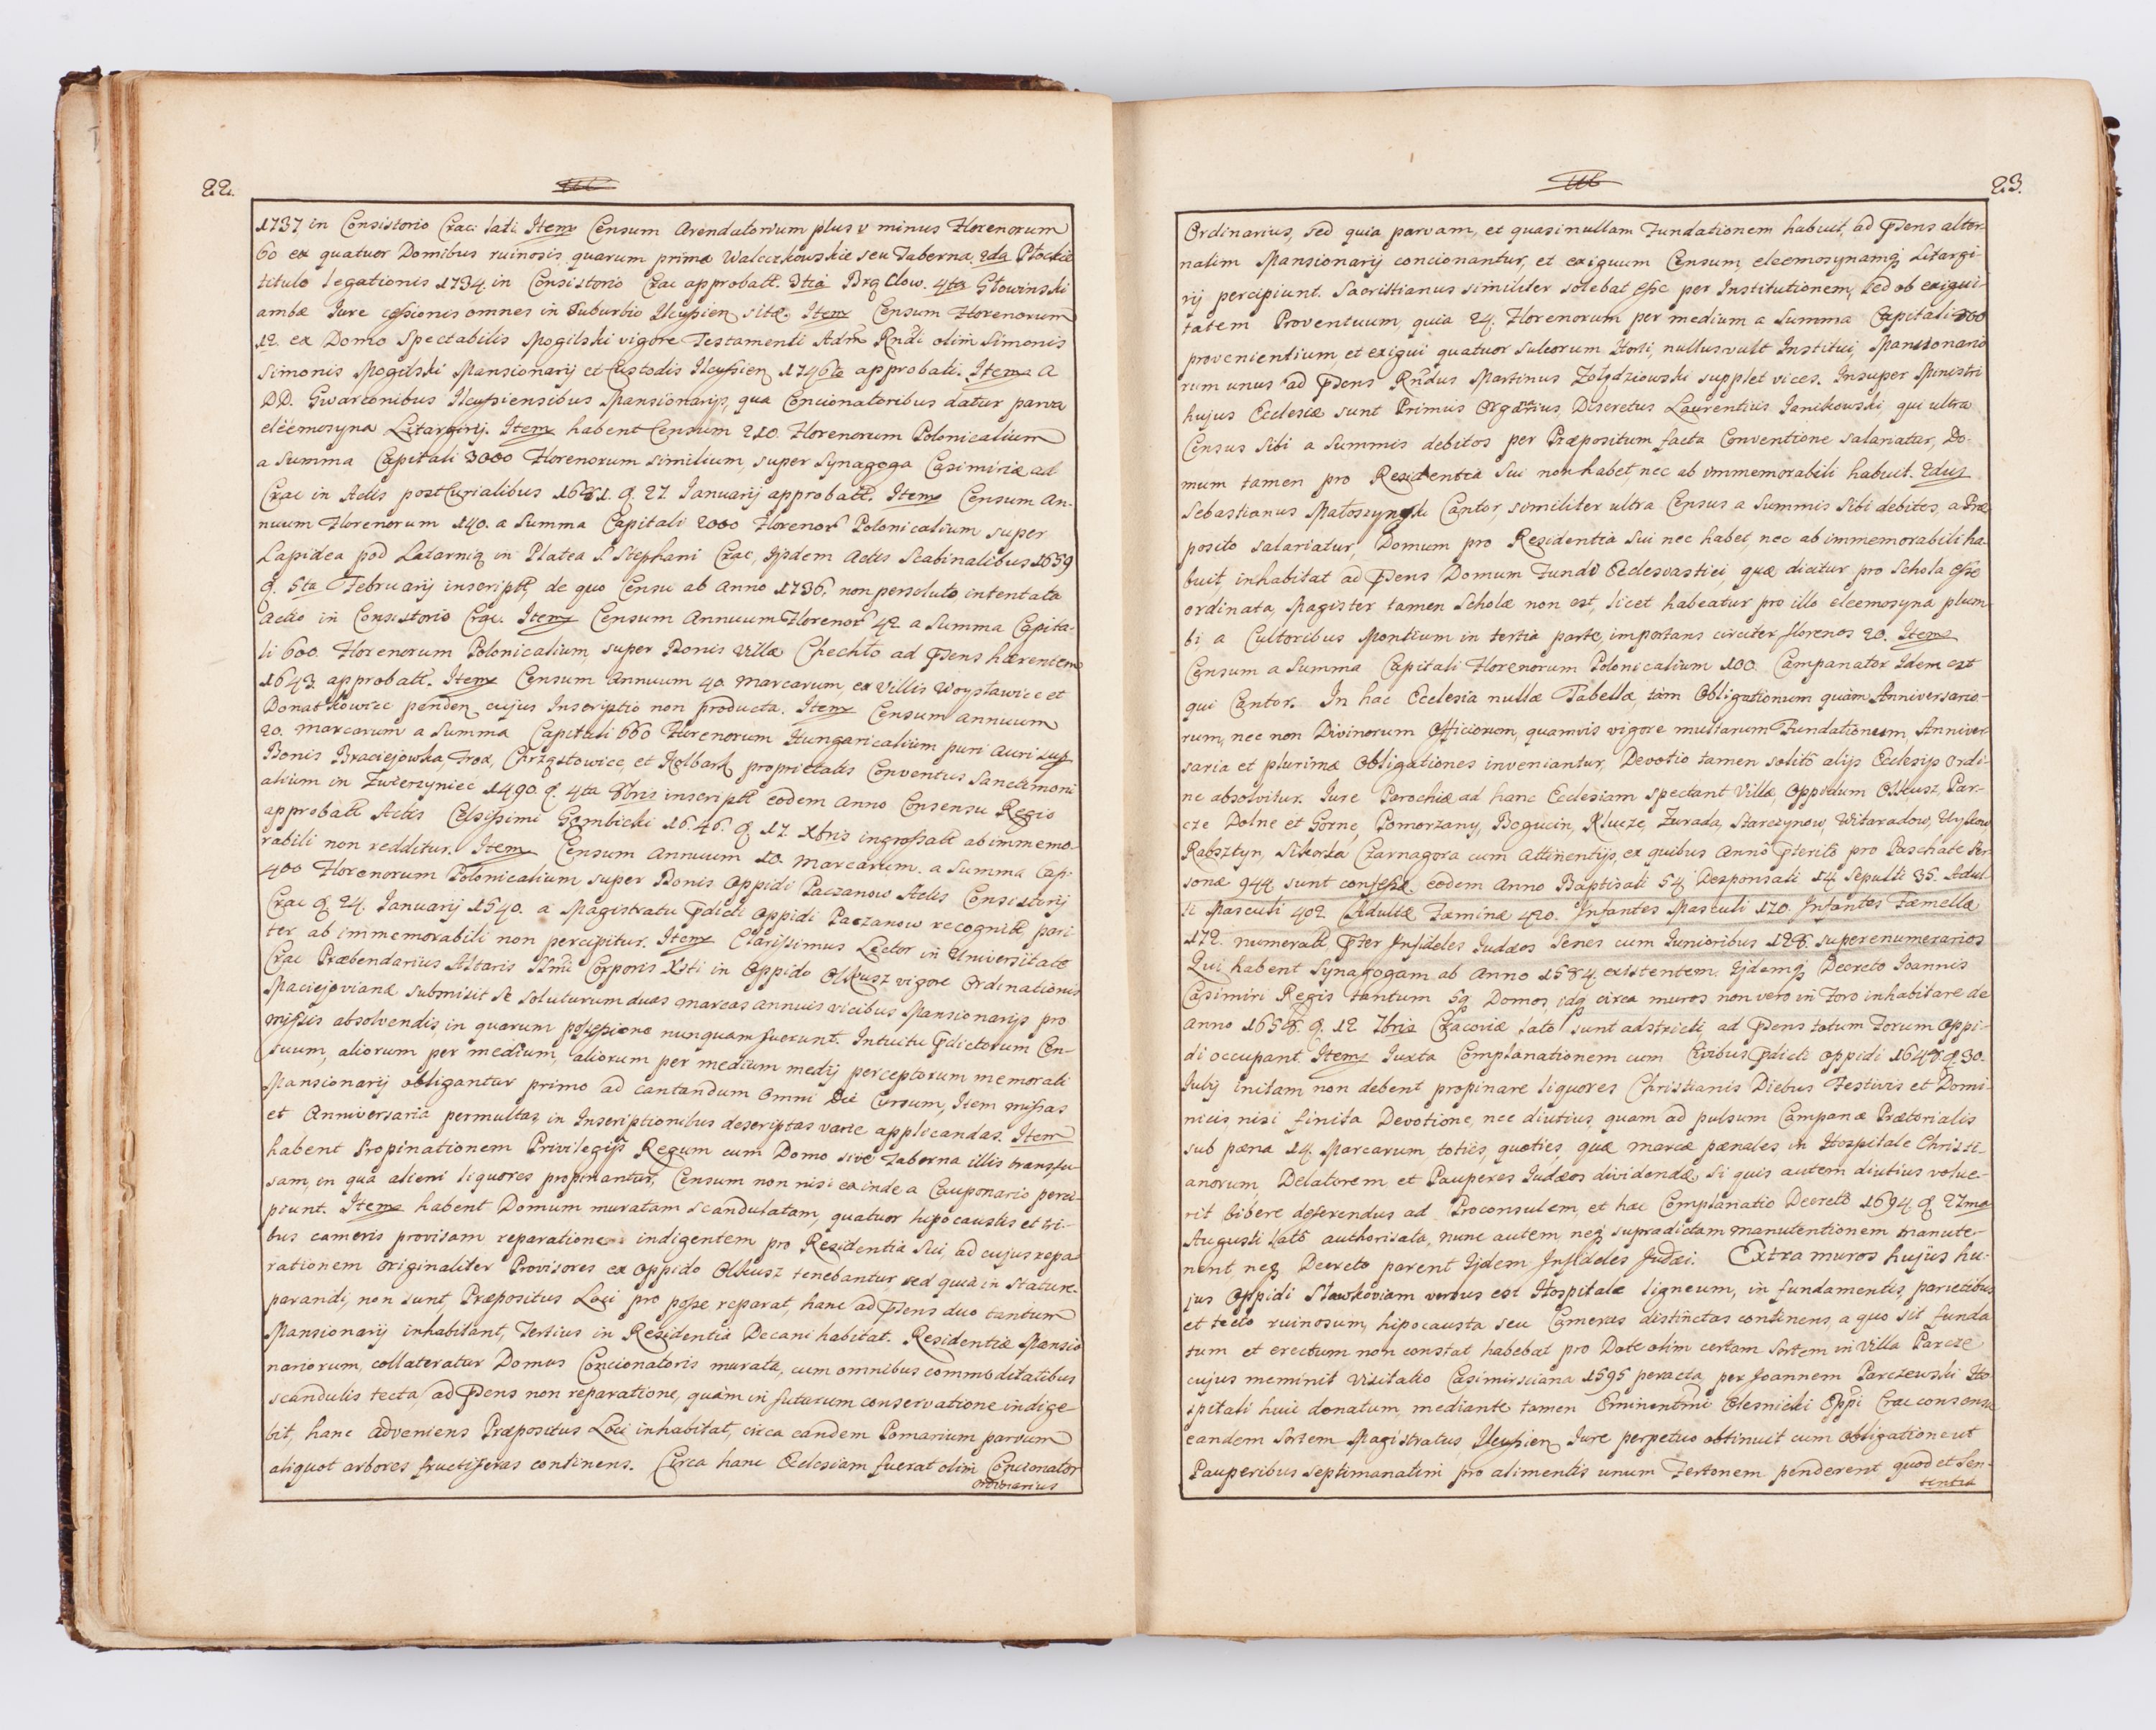 22.
1737 in Consistorio Crac: lati Item Censum Arendatorium plus v minus Florenorum
60 ex quatuor Domibus ruinosis quarum prima Walcezkowskie seu Taberna, 2da Płockie
titulo legationis 1734. in Consistorio Crac approbatt. 3tia Brą Clow. 4ta Głowinski
ambæ Iure cessionis omnes in Suburbio Ilcusien sitæ. Item Censum Florenorum
12. ex Domo Spectabilis Mogilski vigore Testamenti Adm Rndi olim Simonis
Simonis Mogilski Mansionarij et Custodis Ilcusien 1746to approbati. Item a
DD. Gwarconibus Ilcusiensibus Mansionarijs, qua Concionatoribus datur parva
eleemosyna Litargirij. Item habent Censum 210. Florenorum Polonicalium
a Summa Capitali 3000 Florenorum similium, super Synagoga Casimiriæ ad
Crac in Actis post Curialibus 1681. q. 27. Ianuarij approbatt. Item Censum An-
nuum Florenorum 140. a Summa Capitali 2000 Florenor Polonicalium super
Lapidea pod Latarnią in Platea S. Stephani Crac, Ijsdem Actis Scabinalibus 1659
q. 5ta Februarij inscriptt, de quo Censu ab Anno 1736. non persoluto intentata
Actio in Consistorio Crac. Item Censum Annuum Florenor 42 a Summa Capita-
li 600. Florenorum Polonicalium, super Bonis Villæ Chechło ad Psens hærentem
1643 approbatt. Item Censum Annuum 40 Marcarum, ex Villis Woysławice et
Donatkowice penden cujus Inscriptio non producta. Item Censum annuum
20. Marcarum a Summa Capitali 660 Florenorum Hungaricalium puri Auri sup
Bonis Braciejowka, Trox, Chrząstowice, et Kolbark proprietatis Conventus Sanctimoni
alium in Zwierzyniec 1490. q. 4ta 8bris inscriptt eodem Anno Consensu Regio
approbatt Actis Celsissimi Gembicki 1646. q 17. Xbris ingrossatt ab immemo-
rabili non redditur. Item Censum Annuum 10. Marcarum. a Summa Cap:
400 Florenorum Polonicalium super Bonis Oppidi Paczanow Actis Consistorij
Crac q. 24. Ianuarij 1540. a Magistratu Pdicti Oppidi Paczanow recognitt pari-
ter ab immemorabili non percipitur. Item Clarissimus Lector in Universitate
Crac Præbendarius Altaris SSmi Corporis Xsti in Oppido Olkusz vigore Ordinationis
Maciejovianæ submisit se soluturum duas marcas annuis vicibus Mansionarijs pro
missis absolvendis, in quarum possessione nunquam fuerunt. Intuitu Pdictorum Cen-
suum, aliorum per medium, aliorum per medium medij perceptorum memorati
Mansionarij obligantur primo ad cantandum omni die Cursum, Item missas
et Anniversaria permultas, in Inscriptionibus descriptas varie applicandas. Item
habent Propinationem Privilegijs Regum cum Domo sive Taberna illis transfu-
sam, in qua alieni liquores propinantur, Censum non nisi exinde a Cauponario perci-
piunt. Item habent Domum muratam scandulatam, quatuor hipocaustis et tri-
bus cameris provisam reparatione indigentem pro Residentia Sui, ad cujus repa
rationem originaliter Provisores ex Oppido Olkusz tenebantur, sed quia in statu re-
parandi, non sunt, Præpositus Loci pro posse reparat, hanc ad Psens duo tantum
Mansionarij inhabitant, Tertius in Residentia Decani habitat. Residentiæ Mansio
nariorum, collateratur Domus Concionatoris murata, cum omnibus commoditatibus
scandulis tecta, ad Psens non reparatione, quam in futurum conservatione indige
bit, hanc adveniens Præpositus Loci inhabitat, circa eandem Pomarium parvum
aliquot arbores fructiferas continens. Circa hanc Ecclesiam fuerat olim Concionator
Ordinarius
23.
Ordinarius, sed quia parvam, et quasi nullam Fundationem habuit, ad Psens alter-
natim Mansionarij concionantur, et exiguum Censum, eleemosynamq Litargi-
rij percipiunt. Sacristianus similiter solebat esse per Institutionem, sed ob exigui-
tatem Proventuum, quia 24. Florenorum per medium a Summa Capitali
provenientium, et exigui quatuor sulcorum Horti, nullus vult Institui, Mansionario
rum unus ad Psens Rndus Martinus Żołądziowski supplet vices. Insuper Ministri
hujus Ecclesiæ sunt Primus Organarius, Discretus Laurentius Ianikowski, qui ultra
Census sibi a Summis debitos per Præpositum facta Conventione salariatur, Do-
mum tamen pro Residentia Sui non habet, nec ab immemorabili habuit. 2dus
Sebastianus Małoszynski Cantor, similiter ultra Census a Summis sibi debitos, a Præ
posito salariatur, Domum pro Residentia Sui nec habet, nec ab immemorabili ha-
buit, inhabitat ad Psens Domum Fundi Ecclesiastici, quæ dicitur pro Schola esse
ordinata, Magister tamen Scholæ non est, licet habeatur pro illo eleemosyna plum
bi a Cultoribus Montium in tertia parte, importans circiter florenos 20. Item
Censum a Summa Capitali Florenorum Polonicalium 100. Campanator Idem est
qui Cantor. In hac Ecclesia nullæ Tabellæ, tam Obligationum quam Anniversario-
rum, nec non Divinorum Officiorum, quamvis vigore multarum Fundationum, Anniver
saria et plurimæ Obligationes inveniantur, Devotio tamen solito alijs Ecclesijs Ordi-
ne absolvitur. Iure Parochiæ ad hanc Ecclesiam spectant Villæ, Oppidum Olkusz, Par-
cze Dolne et Gorne, Pomorzany, Bogucin, Klucze, Zurada, Starczynow, Witaradow, Uykow
Rabsztyn, Sikorka Czarnagora cum Attinentijs, ex quibus Anno Pterito pro Paschate Per
sonæ 944 sunt confessæ eodem Anno Baptisati 54 Desponsati 14 Sepulti 35. Adul
ti Masculi 402. Adultæ Fæminæ 420. Infantes Masculi 170. Infantes Fæmellæ
172. numeratt Pter Infideles Iudæos Senes cum Iunioribus 128. superenumerarios
Qui habent Synagogam ab Anno 1584. existentem. Ijdemq Decreto Ioannis
Casimiri Regis tantum 59 Domos, idq circa muros non vero in Foro inhabitare de
anno 1658. q. 12 7bris Cracoviæ lato sunt adstricti, ad Psens totum Forum Oppi-
di occupant. Item Iuxta Complanationem cum Civibus Pdicti Oppidi 1648 q 30.
Iulij initam non debent propinare liquores Christianis Diebus Festivis et Domi-
nicis, nisi finita Devotione, nec diutius, quam ad pulsum Campanæ Prætorialis
sub pæna 14. Marcarum, toties, quoties, quæ marcæ pænales, in Hospitale Christi-
anorum, Delatorem et Pauperes Iudæos dividendæ. Si quis autem diutius volue-
rit bibere deferendus ad Proconsulem, et hæc Complanatio Decreto 1694 q 27ma
Augusti lato authorisata, nunc autem neq supradictam manutentionem manute-
nent neq Decreto parent Ijdem Infideles Judæi. Extra muros hujus hu-
jus Oppidi Sławkoviam versus est Hospitale ligneum, in fundamentis, parietibus
et tecto ruinosum, hipocausta seu Cameras distinctas continens, a quo sit funda
tum et erectum non constat habebat pro Dote olim certam Sortem in Villa Parcze
cujus meminit Visitatio Casimirsciana 1595 peracta, per Joannem Parczewski Ho
spitali huic donatum, mediante tamen Eminentmi Olesnicki Eppi Crac consensu
eandem Sortem Magistratus Ilcusien Iure perpetuo obtinuit cum Obligatione ut
Pauperibus septimanatim pro alimentis unum Fertonem penderent quod et Sen-